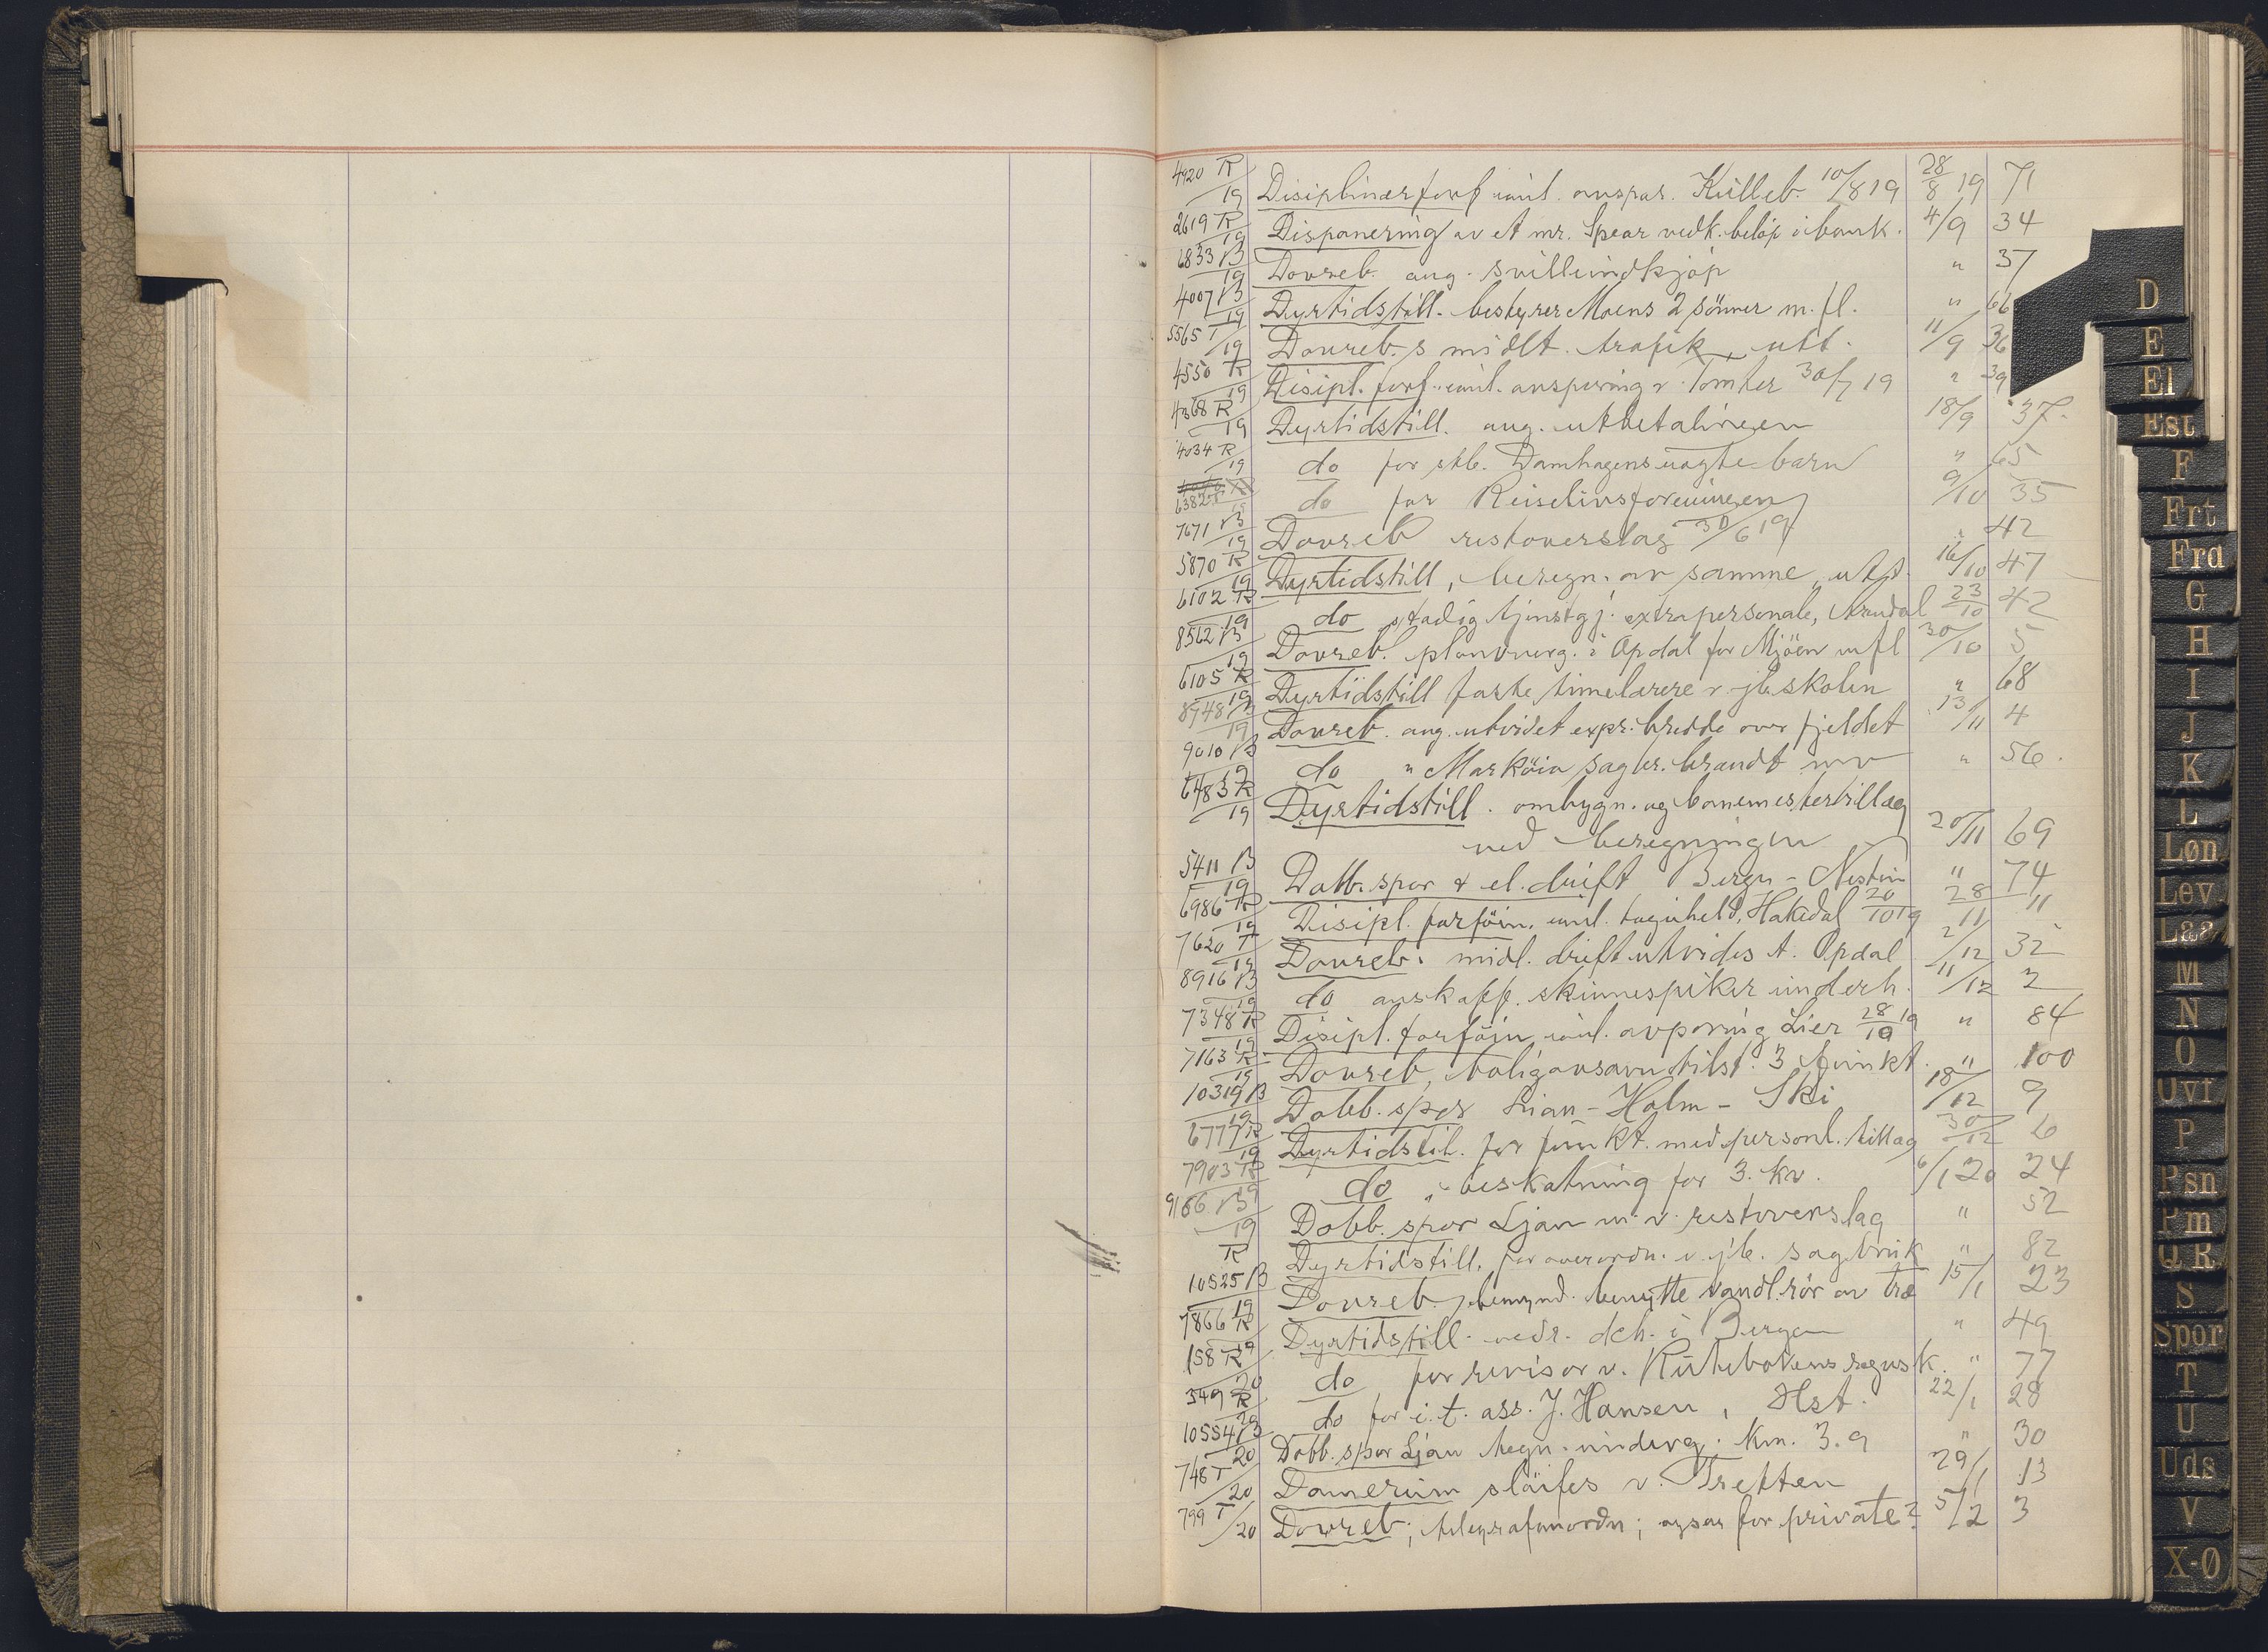 4920 R/19 Disiplinærforf. anl. avspor. Killeb. 10/8 19 28/8 19 71
2619 R/19 Disponering av et mr. Spear vedk. beløp i bank. 4/9 34
6833 B/19 Dovreb. ang. svilleindkjøp " 37
4007 B/19 Dyrtidstill. bestyrer Moens 2 sönner m. fl. " 66
5565 T/19 Dovreb.s midlt. trafik, utt. 11/9 36
4550 R/19 Disipl. forf. anl. avsporing v. Tomter 30/7 19 " 39
4368 R/19 Dyrtidstill. ang. utbetalingen 18/9 37.
4034 R/19 do for stb. Damhagens uægte barn " 65
6382 19 do for Reiselivsforeningen 9/10 35
7671 B/19 Dovreb restoverslag 30/6 19 " 42
5870 R/19 Dyrtidstill, beregn. av samme, utt. 16/10 47
6102 R/19 do stadig tjenstgj. extrapersonale, Arendal 23/10 42
8562 B/19 Dovreb. planoverg. i Opdal for Mjöen mfl 30/10 5
6105 R/19 Dyrtidstill faste timelærere v. jb.skolen " 68
8748 B/19 Dovreb. ang. utvidet expr. bredde over fjeldet 13/11 4
9010 B/19 do " sagbr. brandt mv " 56.
6483 R/19 Dyrtidstill. ombygn. og banemestertillæg
ved beregningen 20/11 69
5411 B/19 Dobb. spor & el. drift Bergen - Nestun " 74
6986 R/19 Disipl. forföin. anl. toguheld, Hakedal 20/10 19 28/11 11
7620 T/19 Dovreb. midl. drift utvides t. Opdal 2/12 32
8916 B/19 do anskaff. skinnespiker underh. 11/12 2
7348 R/19 Disipl. forföin anl. avsporing Lier 28/10 19 " 84
7163 R/19 Dovreb, boligansavn tilst. 3 funkt. " 100
10319 B/19 Dobb. spor Lian - Holm - Ski 18/12 9
6777 R/19 Dyrtidstil. for funkt. med personl. tillæg 30/12 6
7903 R/19 do, beskatning for 3. kv. 6/1 20 24
9166 B/19 Dobb. spor Ljan m. v. restoverslag " 52
R Dyrtidstill. for overordn. v. jb. sagbruk " 82
10525 B/19 Dovreb. bemynd. benytte vandl.rör av træ 15/1 23
7866 R/19 Dyrtidstill. vedr. dch. i Bergen " 49
158 R/20 do for revisor v. regnsk. " 77
349 R/20 do for i. t. ass. J. Hansen, Hst. 22/1 28
10554 B/20 Dobb. spor Ljan underg. km. 3.9 " 30
748 T/20 Damerum slöifes v. Tretten 29/1 13
799 T/20 Dovreb; telegrafanordn; ogsaa for private? 5/2 3
D
E
El
Est
F
Frt
Frd
G
H
I
J
K
L
Løn
Lev.
Laa
M
N
O
Ovf
P
Psn
Pm
Q.R.
S
Spor
T
U
Uds
V
X-Ø